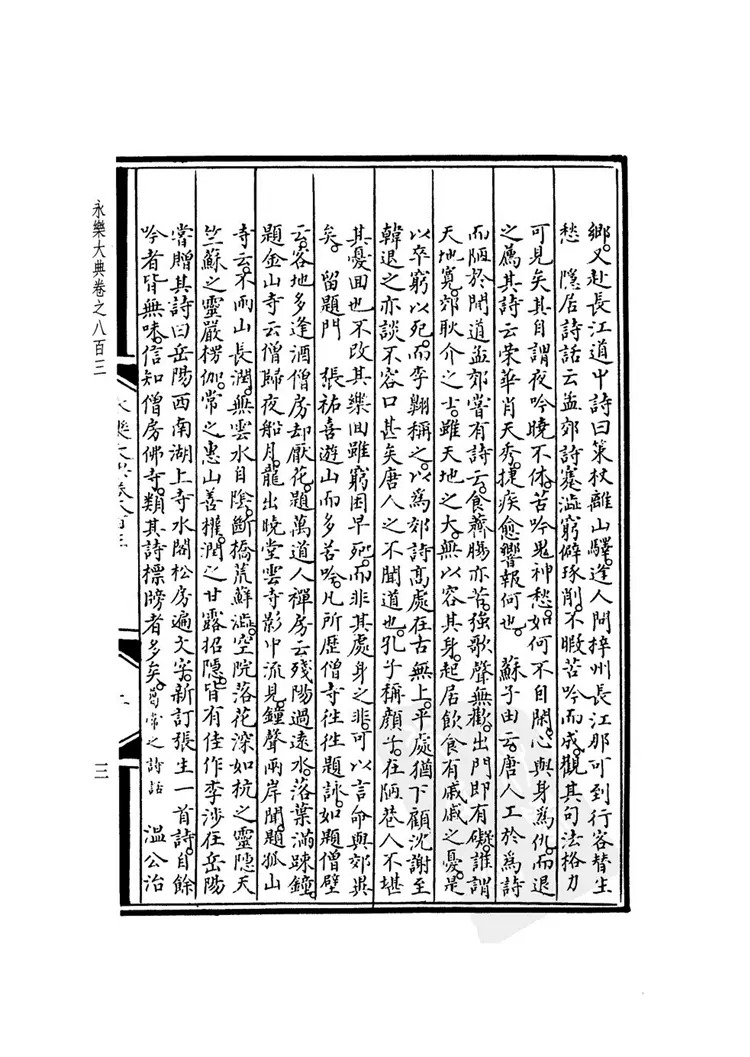 鄉。又赴長江道中詩曰策杖離山驛。逢人問梓州長江那可到行客替生
愁　隱居詩話云孟郊詩蹇澁窮僻琢削。不暇苦吟而成。觀其句法格力
可見矣。其自謂夜吟曉不休。苦吟鬼神愁。如何不自閑。心與身為仇。而退
之薦其詩云榮華肖天秀。捷疾愈響報何也。　蘇子由云。唐人工於為詩
而陋於聞道孟郊嘗有詩云。食薺腸亦苦。強歌聲無歡。出門即有礙。誰謂
天地寬。郊耿介之士。雖天地之大。無以容其身。起居飲食有戚戚之憂。是
以卒窮以死。而李翱稱之。以為郊詩高處在古無上。平處猶下顧沈謝至
韓退之亦談不容口甚矣唐人之不聞道也。孔子稱顔子。在陋巷人不堪
其憂回也不改其樂回雖窮困早死。而非其處身之非。可以言命與郊異
矣。　留題門　張祐喜遊山而多苦吟。凡所歷僧寺徃徃題詠。如題僧壁
云。客地多逢酒僧房却厭花。題萬道人禪房云殘陽過遠水。落葉滿踈鐘。
題金山寺云僧歸夜船月。龍出曉堂雲寺影中流見。鐘聲兩岸聞。題孤山
寺云。不雨山長潤。無雲水自陰。斷橋荒蘚澁。空院落花深如杭之靈隱天
竺蘇之靈嚴楞伽。常之惠山善權。潤之甘露招隱。皆有佳作李涉在岳陽
嘗贈其詩曰岳陽西南湖上寺水閣松房遍文字。新訂張生一首詩。自餘
吟者皆無味。信知僧房佛寺。類其詩標牓者多矣。葛常之詩話　溫公治
永樂大典卷之八百三
三